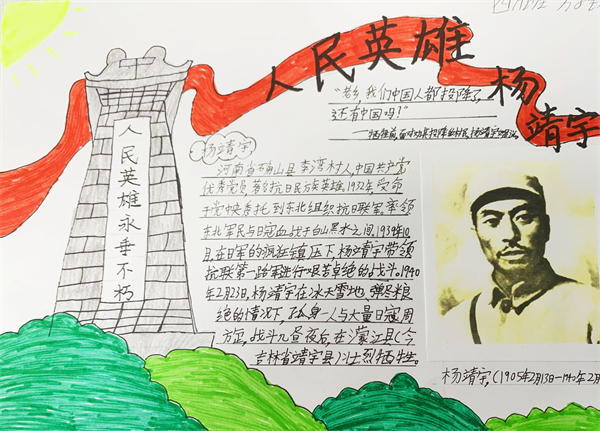 人民英雄
杨靖宇
"老乡,我们中国人都投降了,
还有中国吗?"
杨靖宇
河南省确山县李湾村人,中国共产党
优秀党员,著名抗日民族英雄,1932年受命
于党中央委托,到东北组织抗日联军,率领
东北军民与日寇血战于白山黑水之间,1939年10
月,在日军的疯狂镇压下,杨靖宇带领
抗联第一路军进行艰苦卓绝的战斗。1940
年2月23日,杨靖宇在冰天雪地,弹尽粮
绝的情况下,孤身一人与大量日寇周
旋,战斗几昼夜后,在濛江县(今
吉林省靖宇县)壮烈牺牲。
人民英雄永垂不朽
杨靖宇,(1905年2月13日—1940年2月